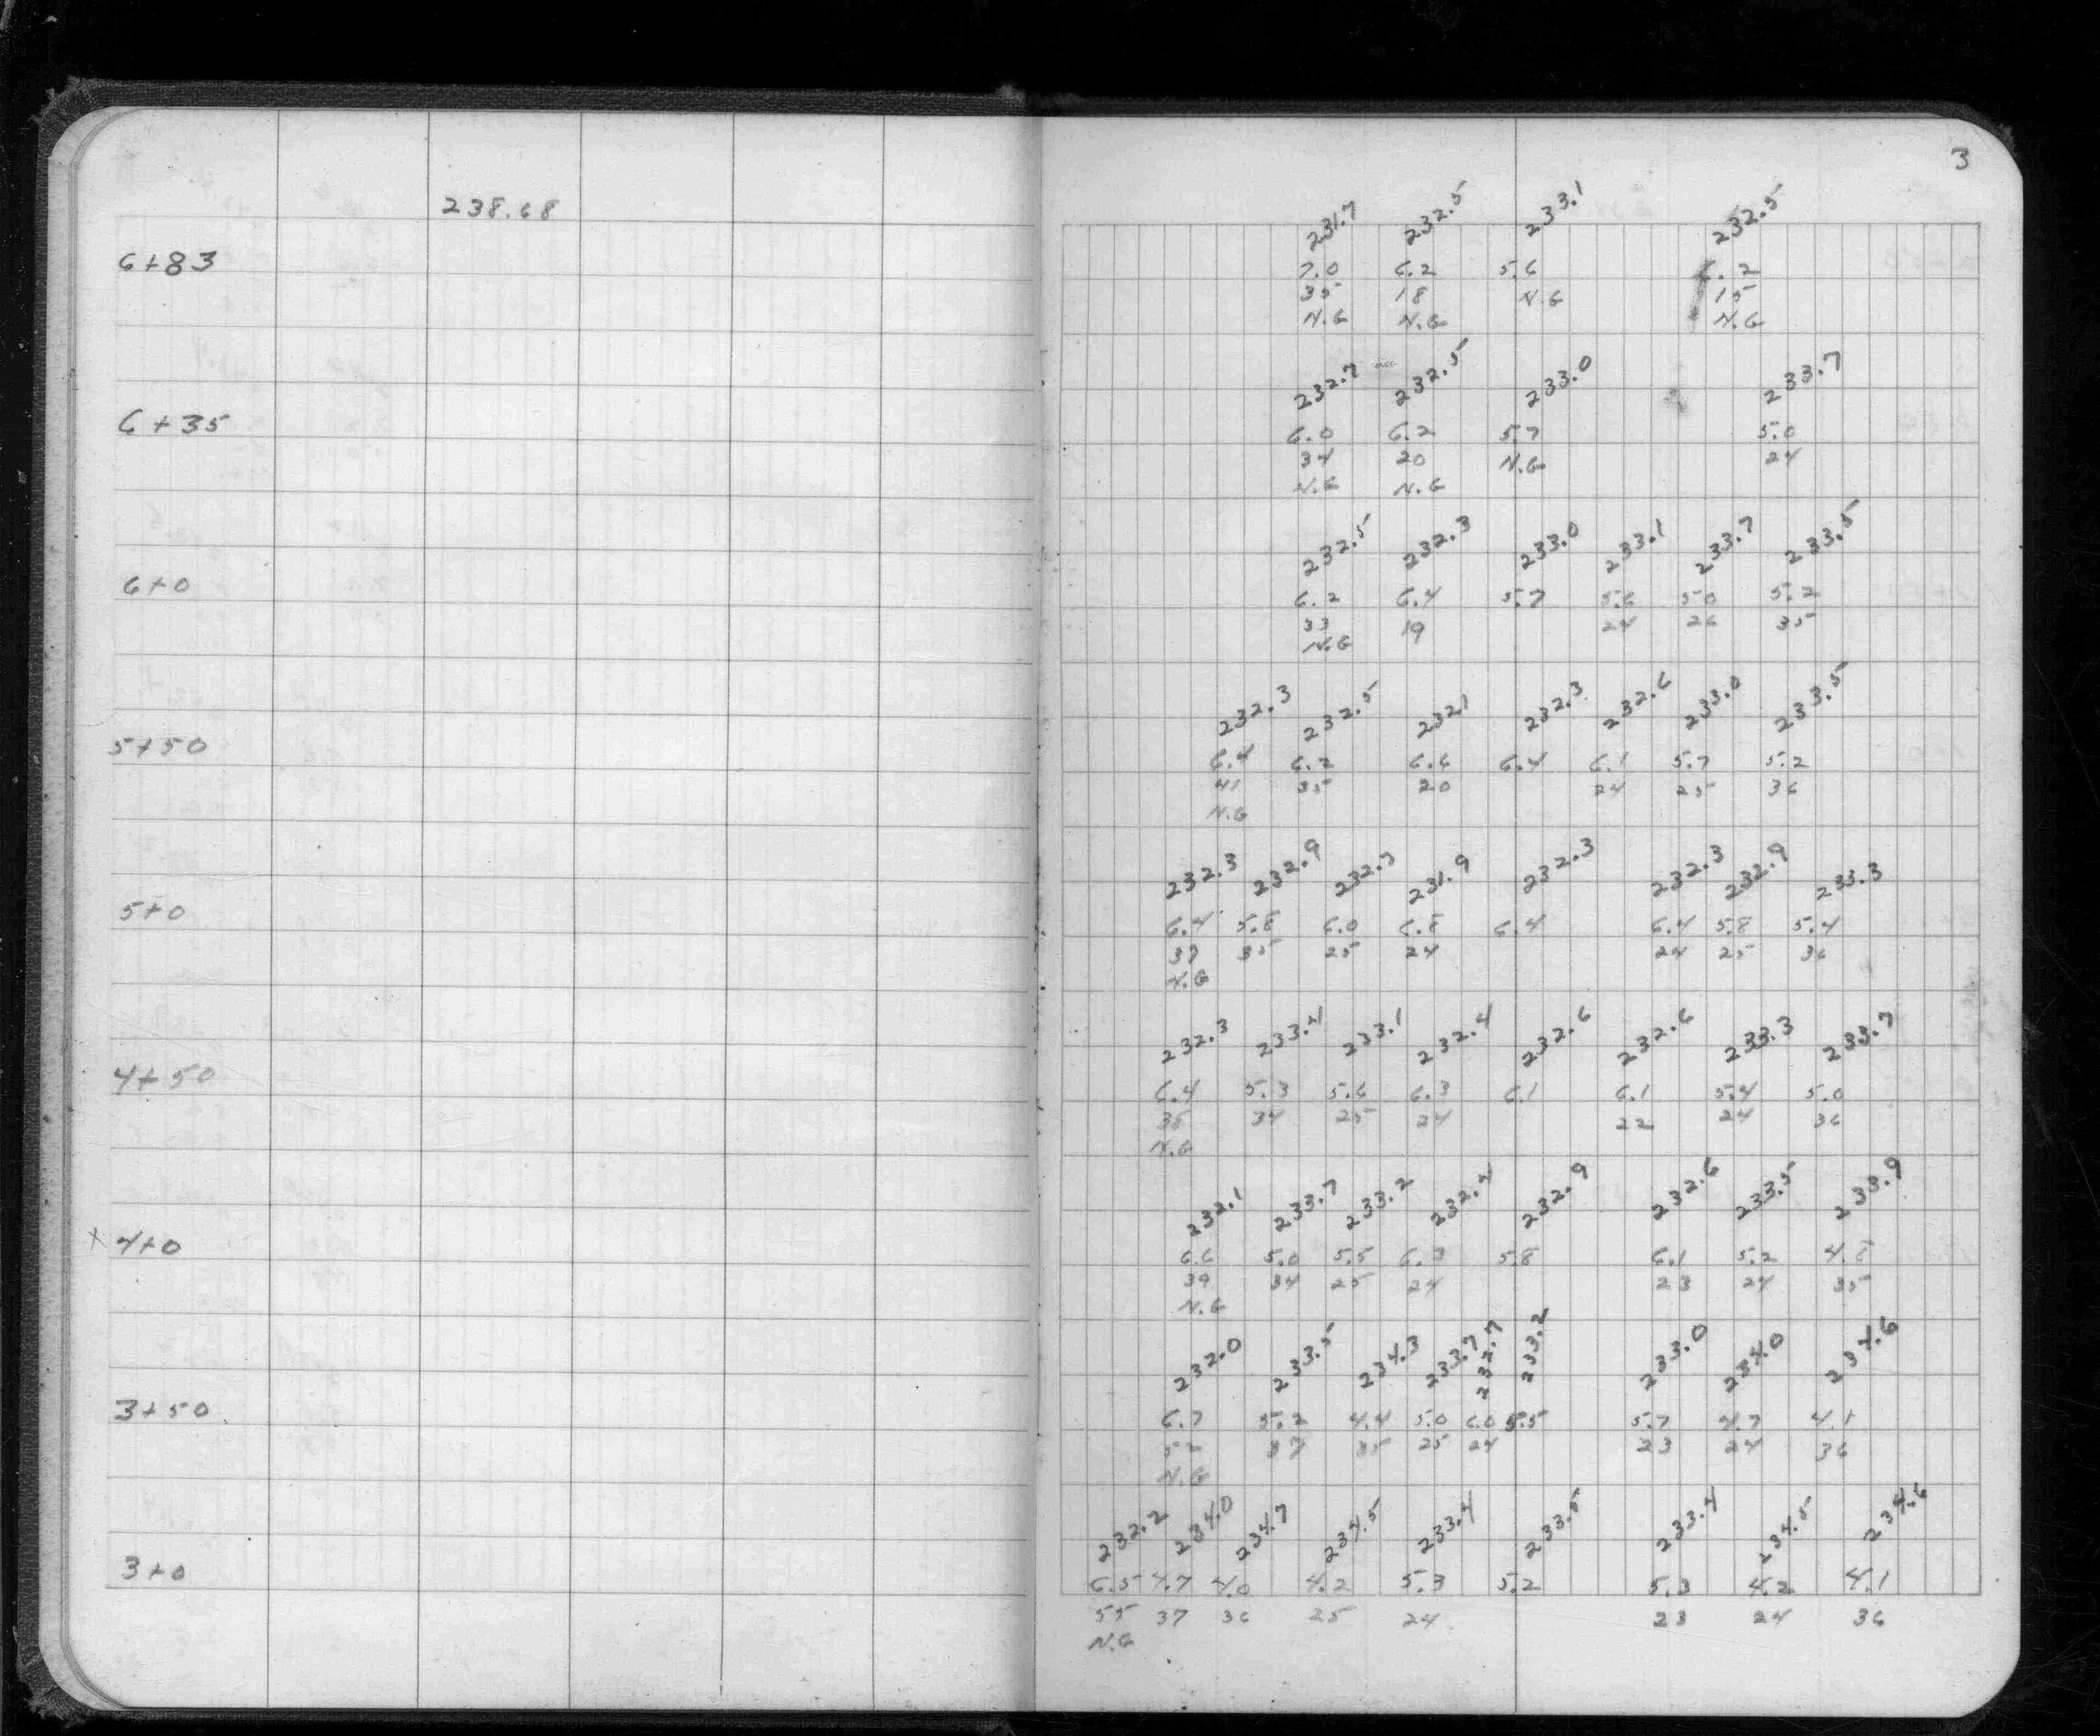 3
238.68
231.7 232.5 233.1 232.5
6+83 7.0 6.2 5.6 6.2
35 18 N.G 15
N.G N.G N.G
232.7 232.5 233.0 233.7
6+35 6.0 6.2 5.7 5.0
34 20 N.G 24
N.G N.G
232.5 232.3 233.0 233.1 233.7 233.5
6+0 6.2 6.4 5.7 5.6 5.0 5.2
33 19 24 26 35
N.G
232.3 232.5 232.1 232.3 232.6 233.0 233.5
5+50 6.4 6.2 6.6 6.4 6.1 5.7 5.2
41 35 20 24 25 36
N.G
232.3 232.9 232.7 231.9 232.3 232.3 232.9 233.3
5+0 6.4 5.8 6.0 6.8 6.4 6.4 5.8 5.4
37 35 25 24 24 25 36
N.G
232.3 233.4 233.1 232.4 232.6 232.6 233.3 233.7
4+50 6.4 5.3 5.6 6.3 6.1 6.1 5.4 5.0
38 34 25 24 22 24 36
N.G
232.1 233.7 233.2 232.4 232.9 232.6 233.5 233.9
x 4+0 6.6 5.0 5.5 6.3 5.8 6.1 5.2 4.8
39 34 25 24 23 24 35
N.G
232.0 233.5 234.3 233.7 232.7 233.2 233.0 234.0 234.6
3+50 6.7 5.2 4.4 5.0 6.0 5.5 5.7 4.7 4.1
52 37 35 25 24 23 24 36
N.G
232.2 234.0 234.7 234.5 233.4 233.5 233.4 234.5 234.6
3+0 6.5 4.7 4.0 4.2 5.3 5.2 5.3 4.2 4.1
55 37 36 25 24 23 24 36
N.G